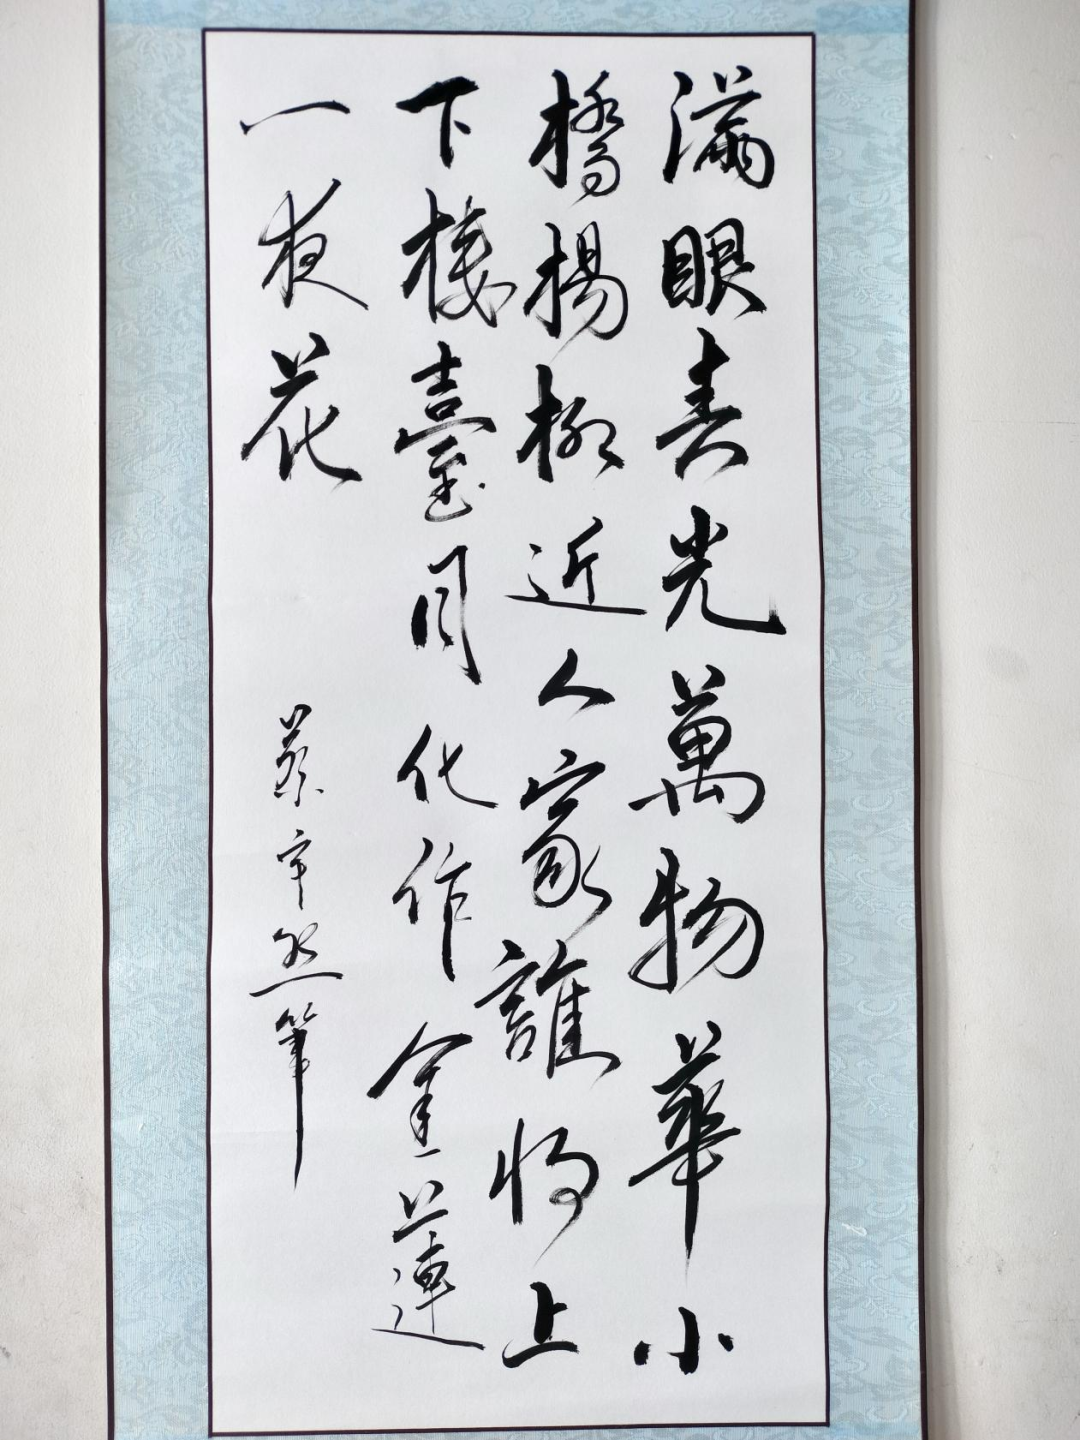 滿眼春光萬物華小
橋楊柳近人家誰將上
下樓臺月化作金蓮
一夜花
蔡宇然筆